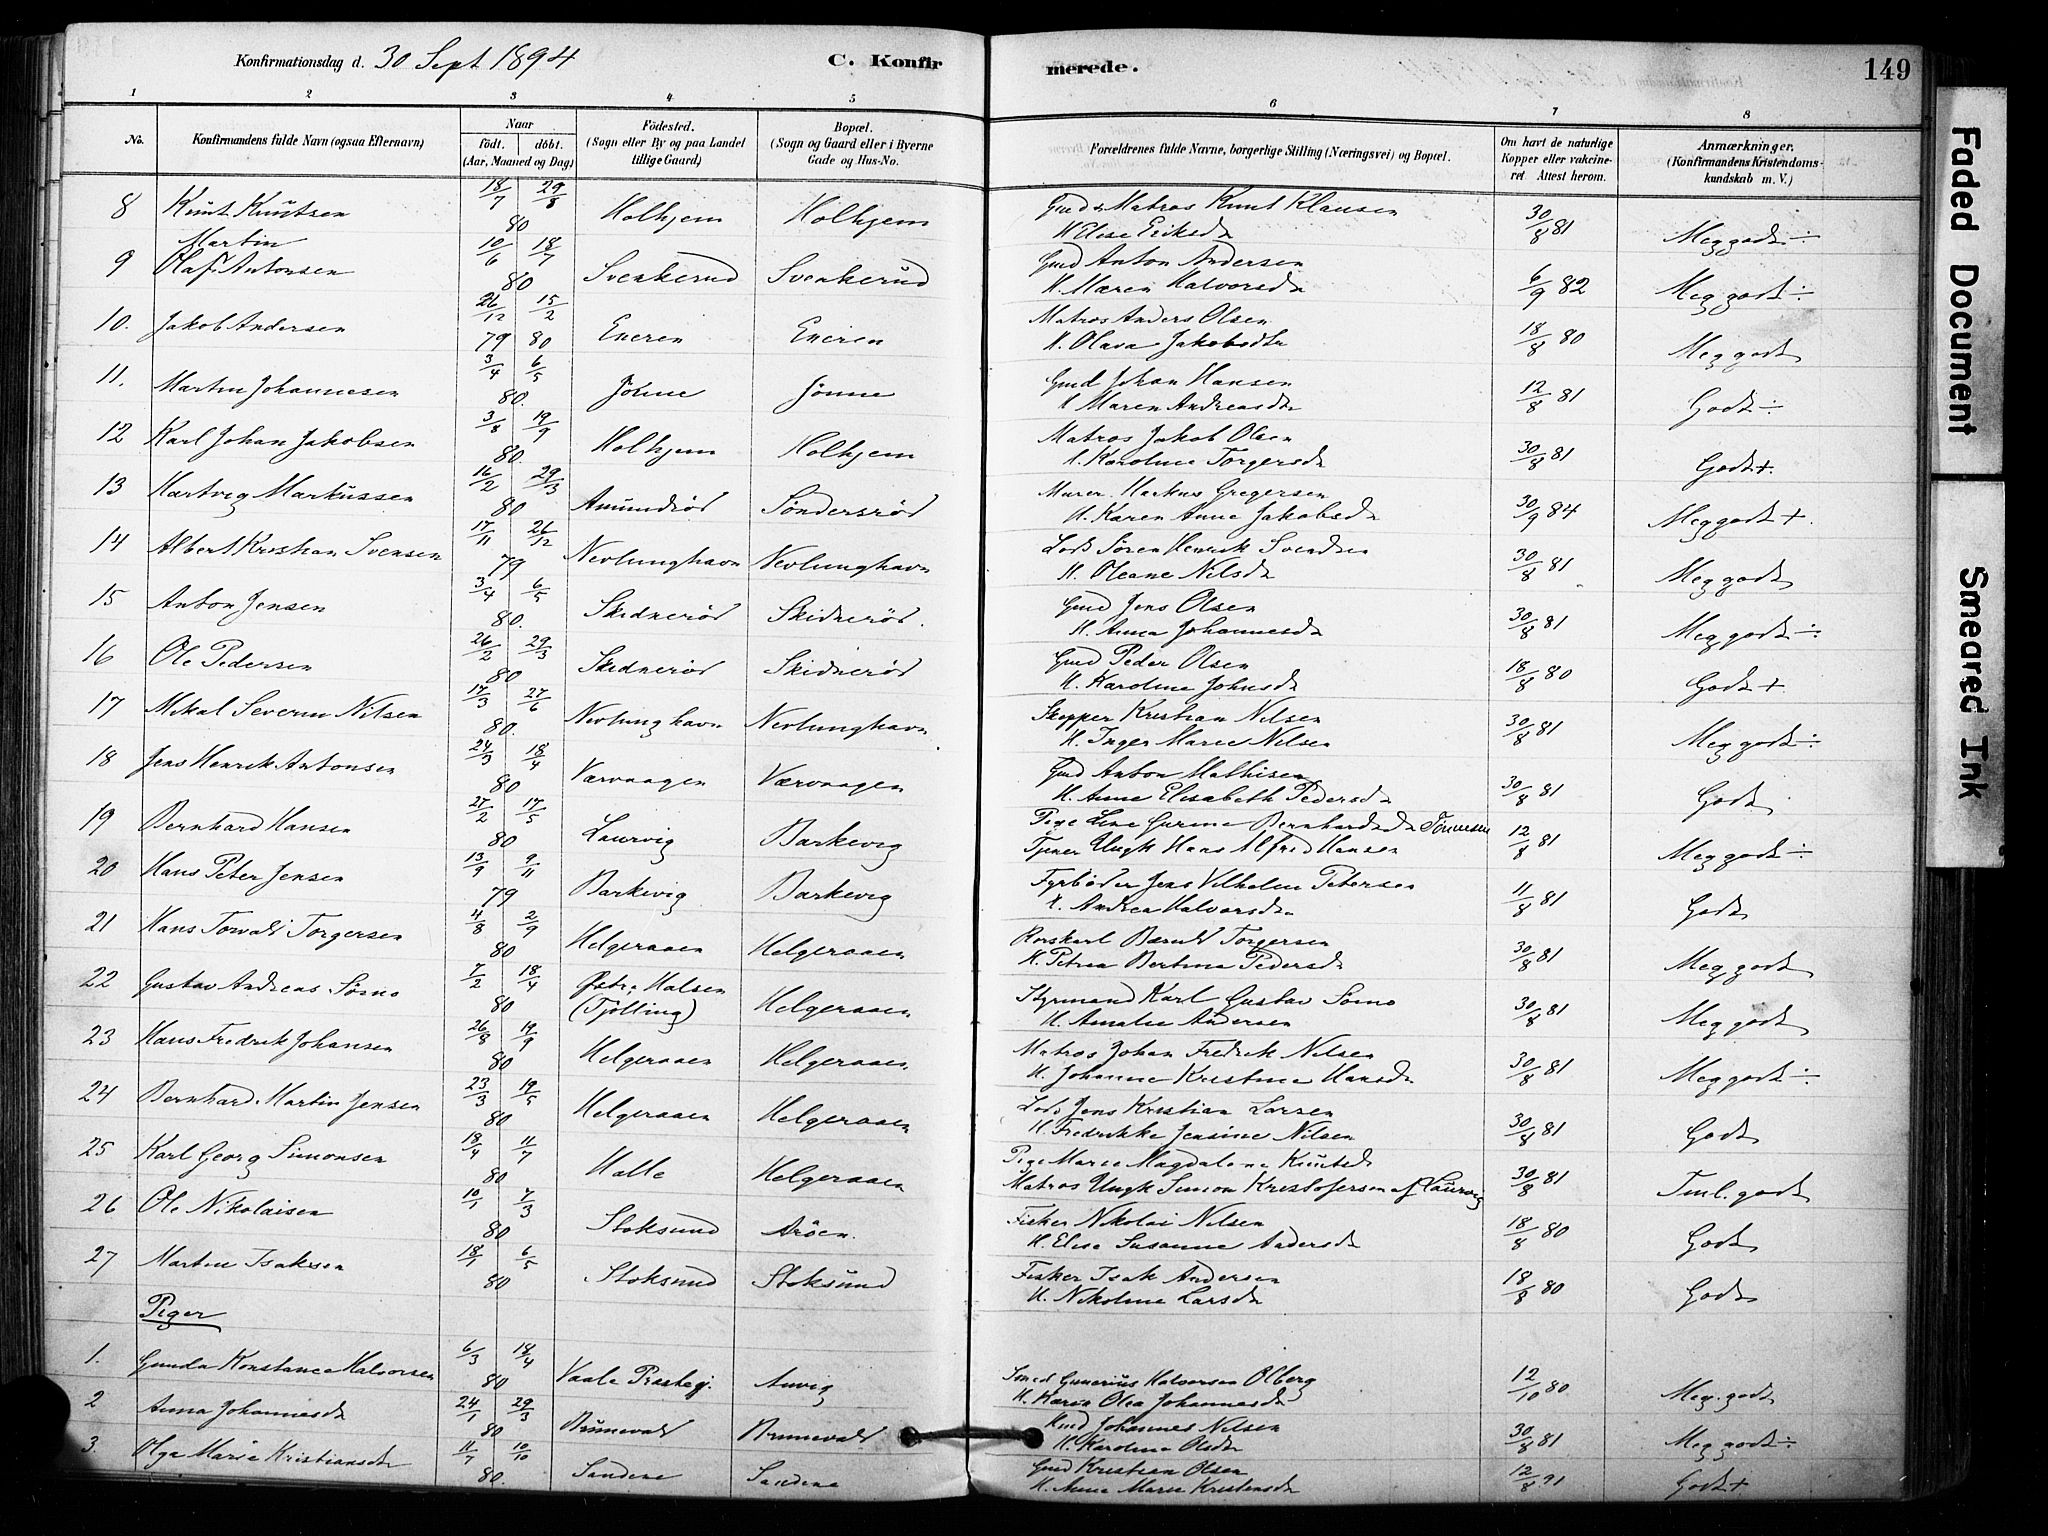 Konfirmationsdag d. 30 Sept 1894 C. Konfirmerede. 149
1 2 3 4 5 6 7 8
No. Konfirmandens fulde Navn (ogsaa Efternavn) Naar födt. döbt. (Aar, Maaned og Dag) Födested. (Sogn eller By og paa Landet tillige Gaard) Bopæl. (Sogn og Gaard eller i Byerne Gade og Hus-No. Forældrenes fulde Navne, borgerlige Stilling (Næringsvei) og Bopæl. Om havt de naturlige Kopper eller vakcineret Attest herom. Anmærkninger. (Konfirmandens Kristendomskundskab m. V.)
8 Knut Knutsen 18/7 29/8 80 Holhjem Holhjem Gmd & Matros Knut Klausen H. Elise Eriksdr 30/8 81 Meg godt ÷
9 Olaf Martin Antonsen 10/6 18/7 80 Svenkerud Svenkerud Gmd Anton Andersen H. Maren Halvorsdr 6/9 82 Meg godt ÷
10. Jakob Andersen 26/12 79 15/2 80 Eneren Eneren Matros Anders Olsen H. Olava Jakobsdtr 18/8 80 Meg godt
11. Martin Johannesen 3/4 6/5 80. Jönne Jönne Gmd Johan Hansen H. Maren Andreasdr 12/8 81 Godt ÷
12 Karl Johan Jakobsen 3/8 19/9 80. Holhjem Holhjem Matros Jakob Olsen H. Karoline Torgersdr 30/8 81 Godt +.
13 Hartvig Markussen 16/2 29/3 80 Amundröd Söndersröd Murer Markus Gregersen H. Karen Anne Jakobsdr 30/9 84 Meg godt +.
14 Albert Kristian Svensen 17/11 26/12 79 Nevlunghavn Nevlunghavn Lods Sören Henrik Svendsen H. Oleane Nilsdr 30/8 81 Meg godt
15 Anton Jensen 3/4 6/5 80. Skidneröd Skidneröd. Gmd Jens Olsen H. Anna Johannesdr 30/8 81 Meg godt ÷
16 Ole Pedersen 26/2 29/3 80 Skidneröd Skidneröd Gmd Peder Olsen H. Karoline Johnsdr 18/8 80 Godt +
17 Mikal Severin Nilsen 17/3 27/6 80. Nevlunghavn Nevlunghavn Skipper Kristian Nilsen H. Inger Marie Nilsen 30/8 81 Meg godt ÷
18 Jens Henrik Antonsen 24/3 18/4 80 Værvaagen Værvaagen Gmd Anton Mathisen H. Anne Elisabeth Pedersdr 30/8 81 Godt
19 Bernhard Hansen 27/2 17/5 80 Laurvig Barkevig Pige Lina Gurine Bernhardsdr Tönnesen Tjener Ungk Hans Alfred Hansen 12/8 81 Meg godt ÷
20 Hans Peter Jensen 13/9 9/11 79 Barkevig Barkevig Fyrböder Jens Vilhelm Petersen H. Andrea Halvorsdr 11/8 81 Godt
21 Hans Torvald Torgersen 4/8 2/9 80 Helgeraaen Helgeraaen Rorskarl Bærnt Torgersen H. Petrea Bertine Pedersdr 30/8 81 Meg godt
22 Gustav Andreas Sömo 7/2 18/4 80 Östr. Halsen (Tjölling) Helgeraaen Styrmand Karl Gustav Sömo H. Amalie Andersen 30/8 81 Meg godt
23 Hans Fredrik Johansen 26/8 19/9 80 Helgeraaen Helgeraaen Matros Johan Fredrik Nilsen H. Johanne Kristine Hansdr 30/8 81 Meg godt ÷
24 Bernhard Martin Jensen 23/3 19/5 80 Helgeraaen Helgeraaen Lods Jens Kristian Larsen H. Fredrikke Jensine Nilsen 30/8 81 Godt
25 Karl Georg Simonsen 18/4 11/7 80 Halle Helgeraaen Pige Marie Magdalene Knutsdr Matros Ungk Simon Kristofersen af Laurvig 30/8 81 Tml. godt
26 Ole Nikolaisen 10/1 7/3 80 Stoksund Aröen. Fisker Nikolai Nilsen H. Elise Susanne Andersdr 18/8 80 Godt
27 Martin Isaksen 18/1 6/5 80 Stoksund Stoksund Fisker Isak Andersen H. Nikoline Larsdr 18/8 80 Godt
Piger
1. Gunda Konstance Halvorsen 6/3 18/4 80 Vaale Prestegj. Anvig Smed Gunerius Halvorsen Olberg H. Maria Olea Johannesdr 12/10 80 Meg. godt
2 Anna Johannesdr 24/1 29/3 80 Brunevald Brunevald Gmd Johannes Nilsen H. Karoline Olsdr 30/8 81 Meg godt ÷
3. Olga Marie Kristiansdr 11/7 10/10 80. Sandene Sandene Gmd Kristian Olsen H. Anne Marie Kristensdr 12/8 91 Godt +
Faded Document
Smeared Ink